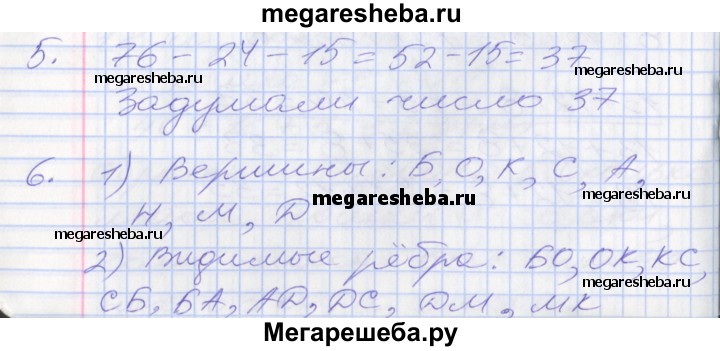 megaresheba.ru
5. 76 - 24 - 15 = 52 - 15 = 37
megaresheba.ru
megaresheba.ru
Задумали число 37
6. 1) Вершины: Б, О, К, С, А,
megaresheba.ru
megaresheba.ru
Н, М, D
megaresheba.ru
2) Видимые рёбра: БО, ОК, КС,
megaresheba.ru
СБ, БА, АD, DС, DМ, МК
Мегарешеба.ру